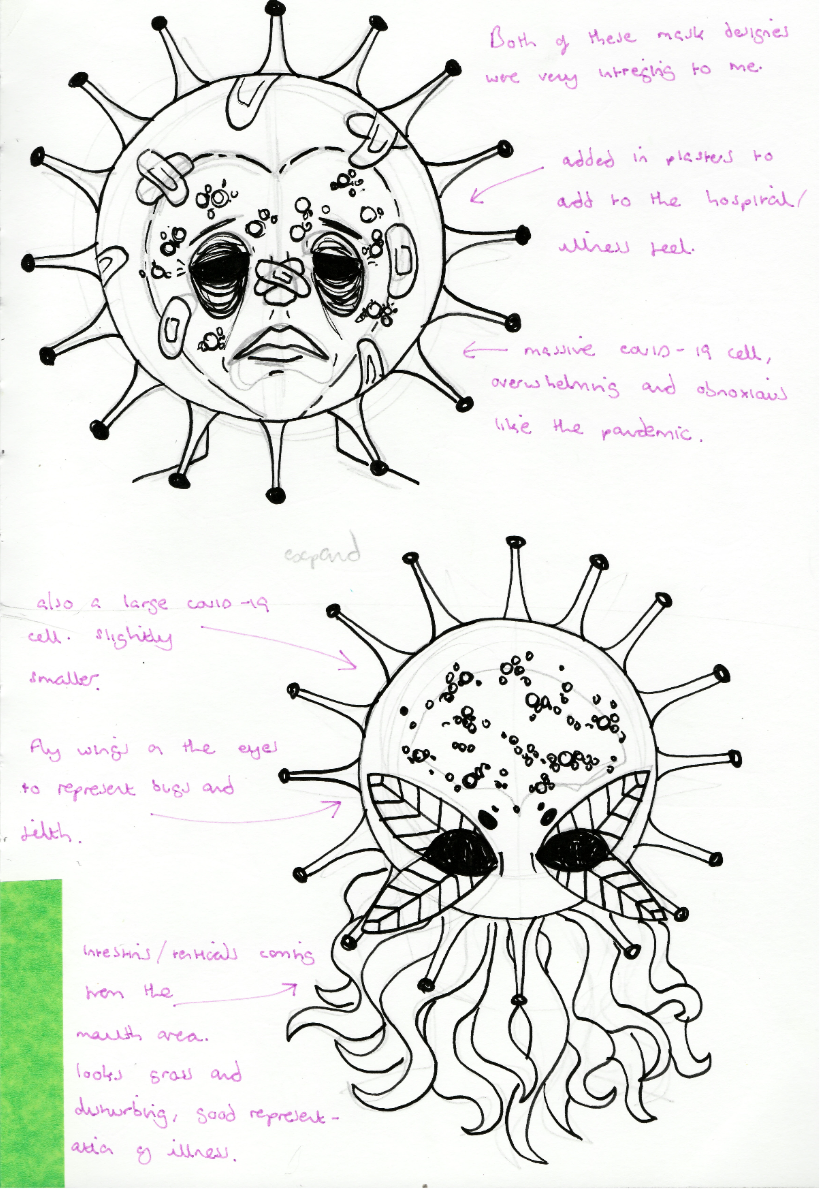 Both of these mask designes
were very intreging to me.
added in plasters to
add to the hospital/
illness feel.
massive covid-19 cell,
overwhelming and obnoxious
like the pandemic.
expand
also a large covid-19
cell. slightly
smaller.
Fly wings on the eyes
to represent bugs and
filth.
intestins/tenticals coming
from the
mouth area.
looks gross and
disturbing, good represent-
ation of illness.